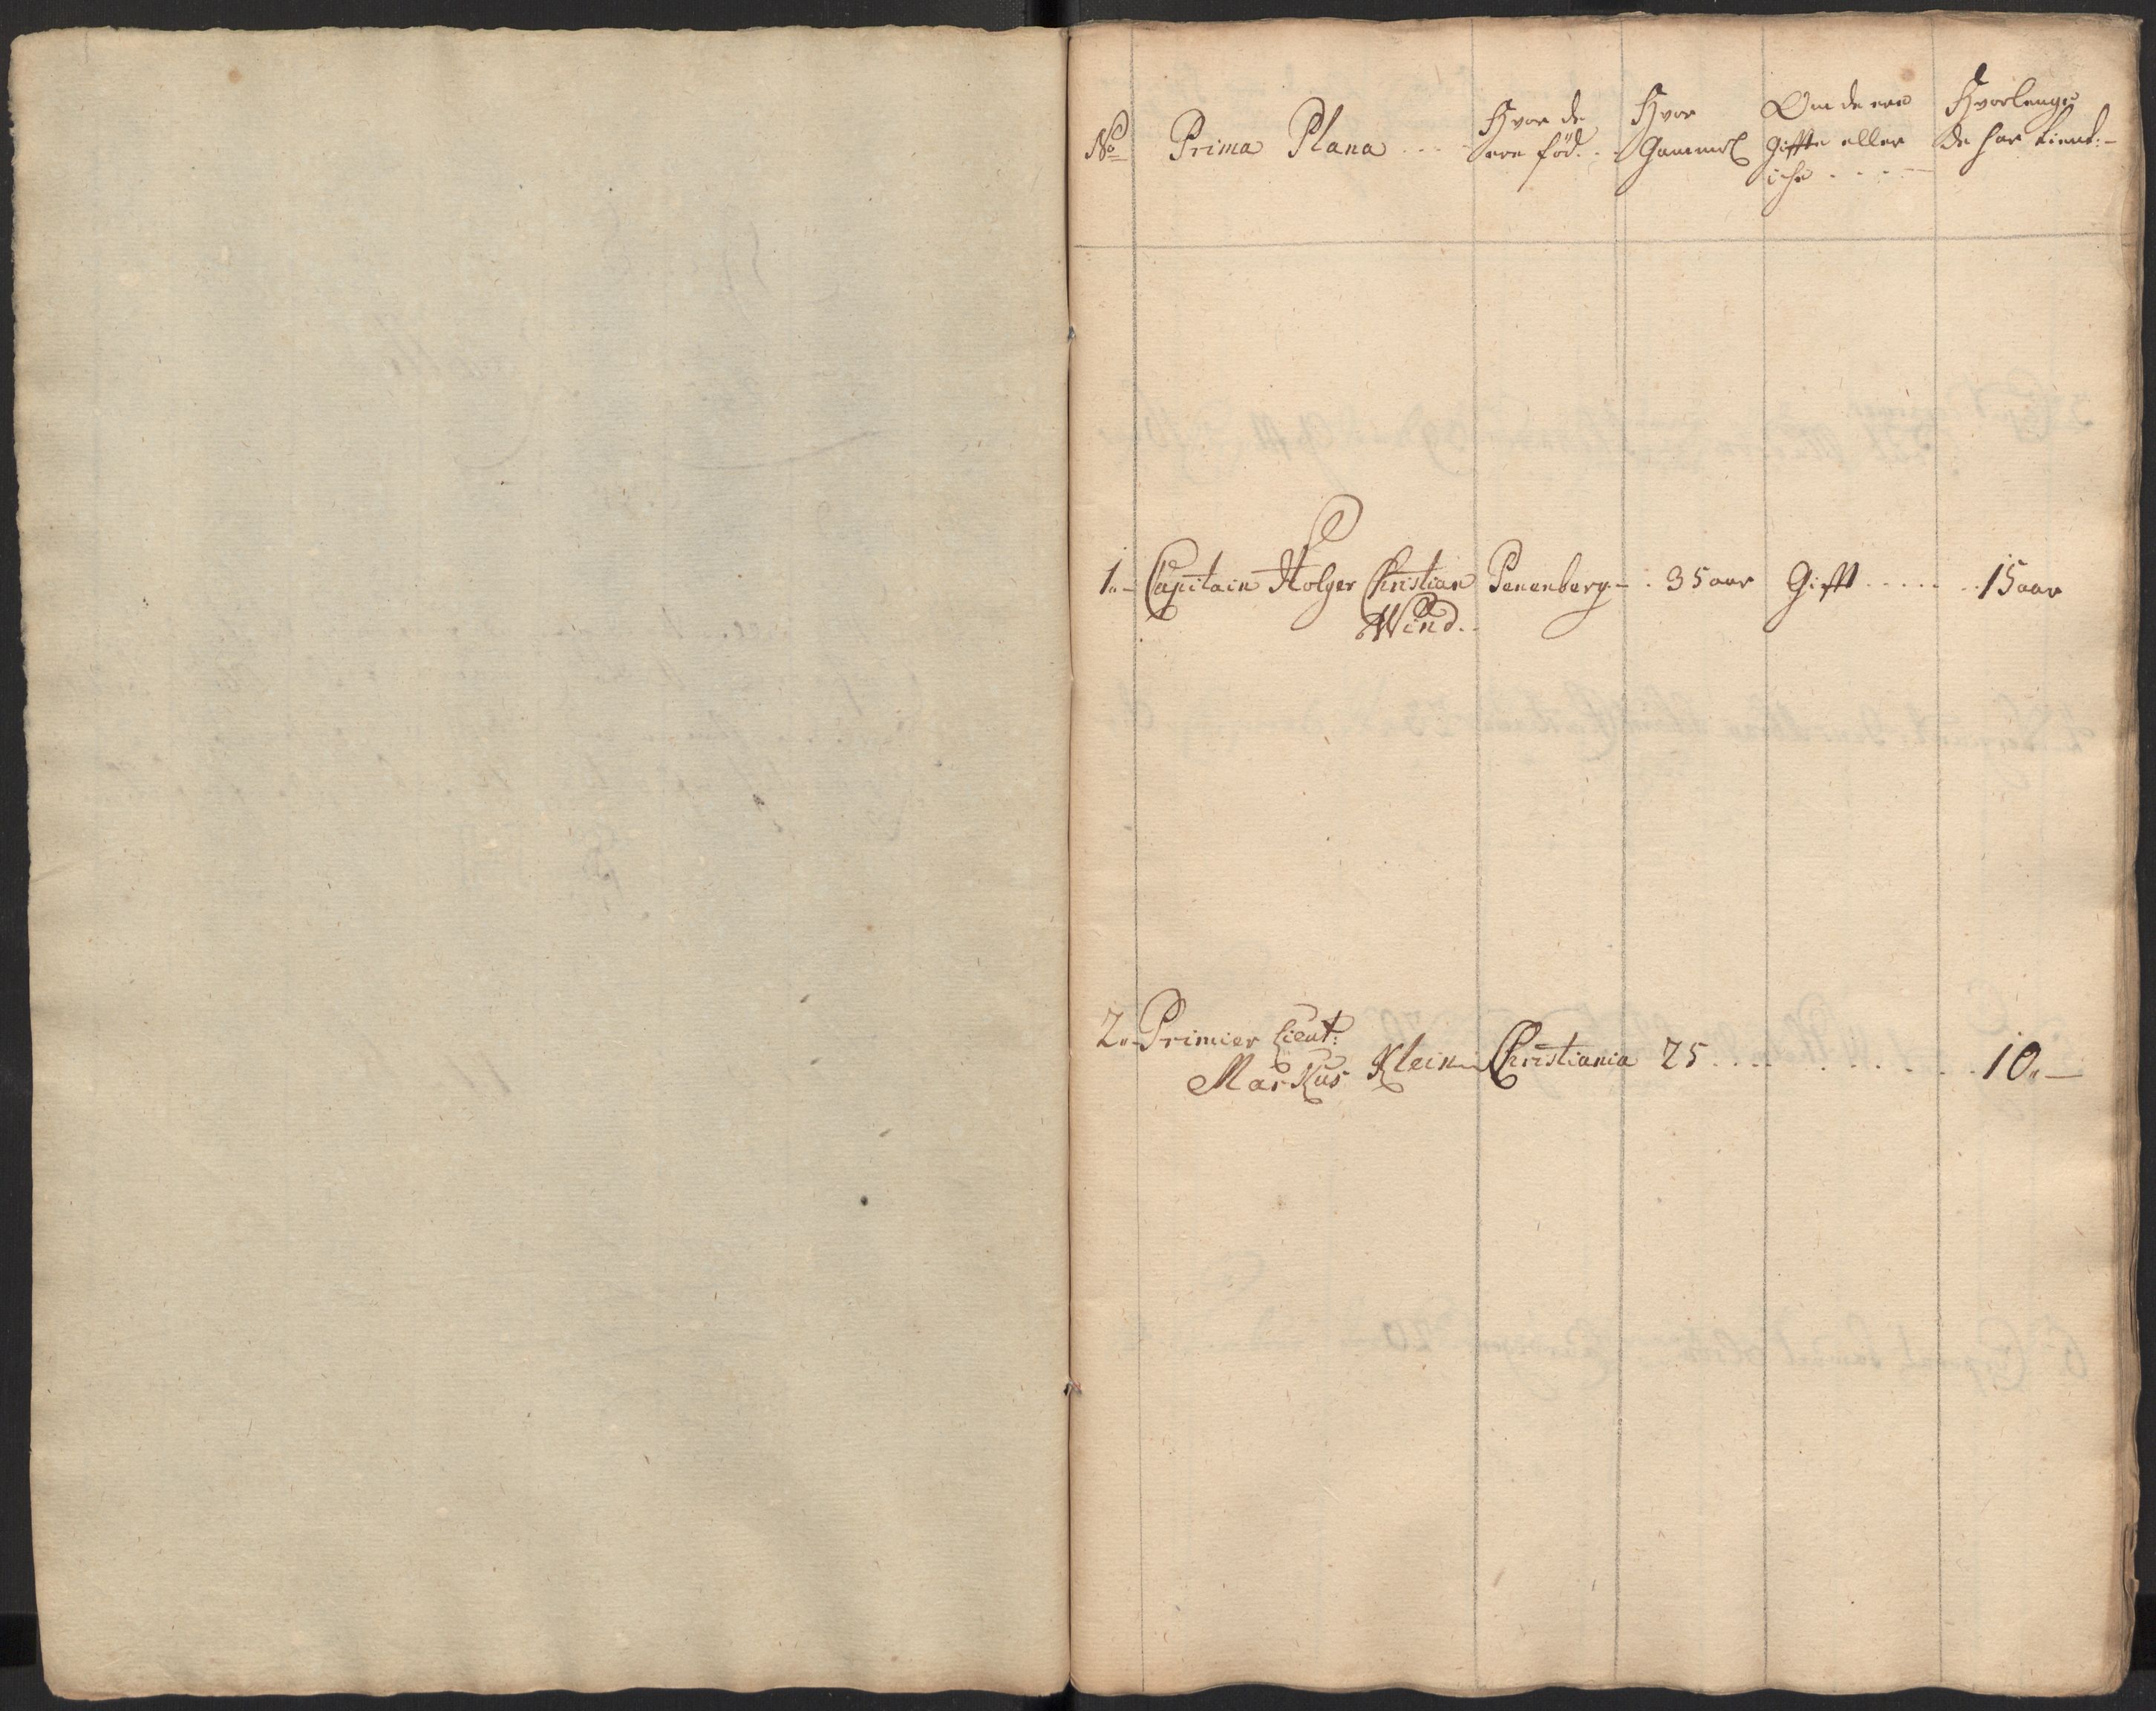 No Prima Plana ... Hvor de ere fød. . Hvor Gammel Om de ere Giffte eller iche . . . . Hvorlenge de har tient: -
1. - Capitain Holger Christian Wind. . Penenberg - . 35 aar Gifft . . . . . 15 aar
2. - Primier Lieut: Markus Klein Christiania 25 . . . . . . . . . 10. -